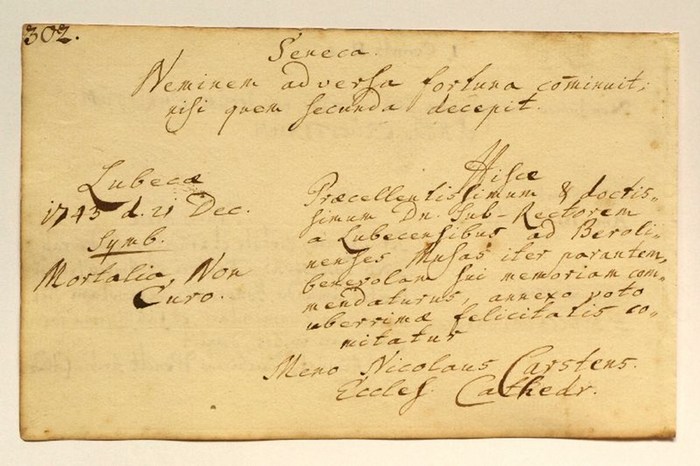 302.
Seneca.
Neminem adversa fortuna cominuit,
nisi quem secunda decepit.
Lubecæ
1745 d. 21 Dec.
Symb.
Mortalia, Non
Curo.
Hisce
Præcellentissimum & doctis-
simum Dn. Sub-Rectorem
a Lubecensibus ad Beroli-
nenses Musas iter parantem,
benevolam sui memoriam com-
mendaturus, annexo voto
uberrimæ felicitatis co-
mitatus
Meno Nicolaus Carstens.
Eccles. Cathedr.